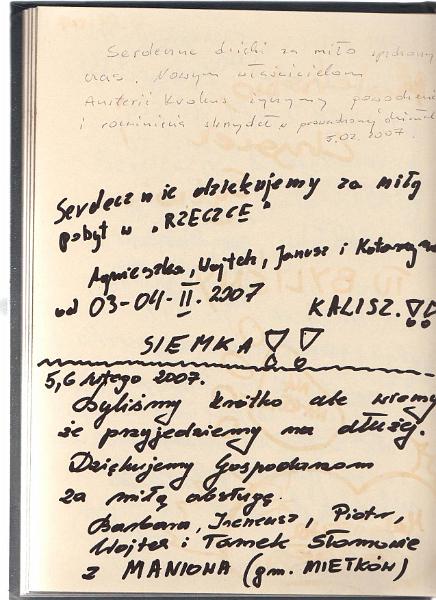 Serdeczne dzięki za miło spędzony
czas. Nowym właścicielom
Austerii Krokus życzymy powodzenia
i rozwinięcia skrzydeł w prowadzonej
5.02.2007.
Serdecznie dziękujemy za miły
pobyt w "RZECZCE"
Agnieszka, Wojtek, Janusz i Katarzyna
od 03-04-II.2007
KALISZ.!!
SIEMKA !!
5,6 lutego 2007.
Byliśmy krótko ale wiemy
że przyjedziemy na dłużej.
Dziękujemy Gospodarzom
za miłą obsługę.
Barbara, Ireneusz, Piotr,
Wojtek i Tomek Słomowie
z MANIOWA (gm. MIETKÓW)